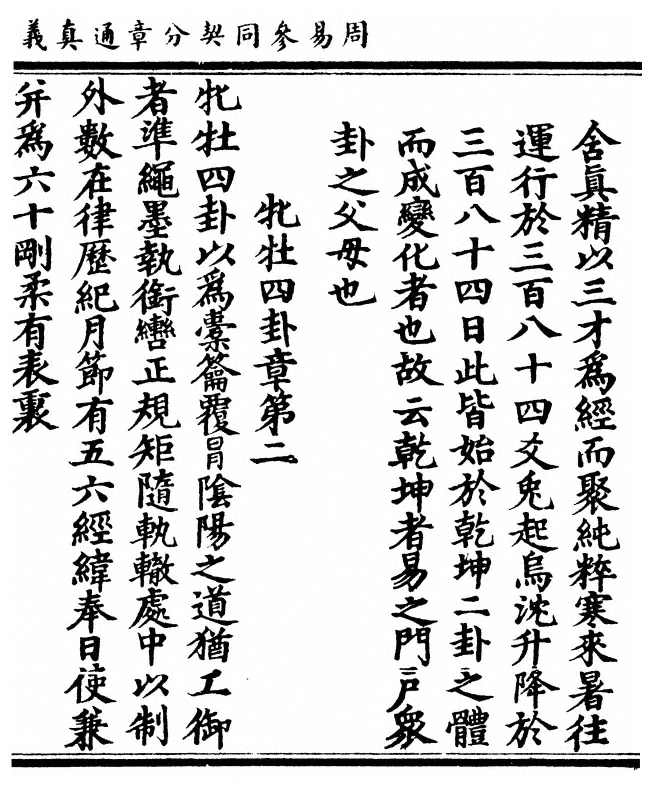 周易參同契分章通真義
含真精以三才為經而聚純粹寒來暑往
運行於三百八十四爻兎起烏沈升降於
三百八十四日此皆始於乾坤二卦之體
而成變化者也故云乾坤者易之門戶衆
卦之父母也
牝牡四卦章第二
牝牡四卦以為橐籥覆冒陰陽之道猶工御
者準繩墨執銜轡正規矩隨軌轍處中以制
外數在律歷紀月節有五六經緯奉日使兼
并為六十剛柔有表裏